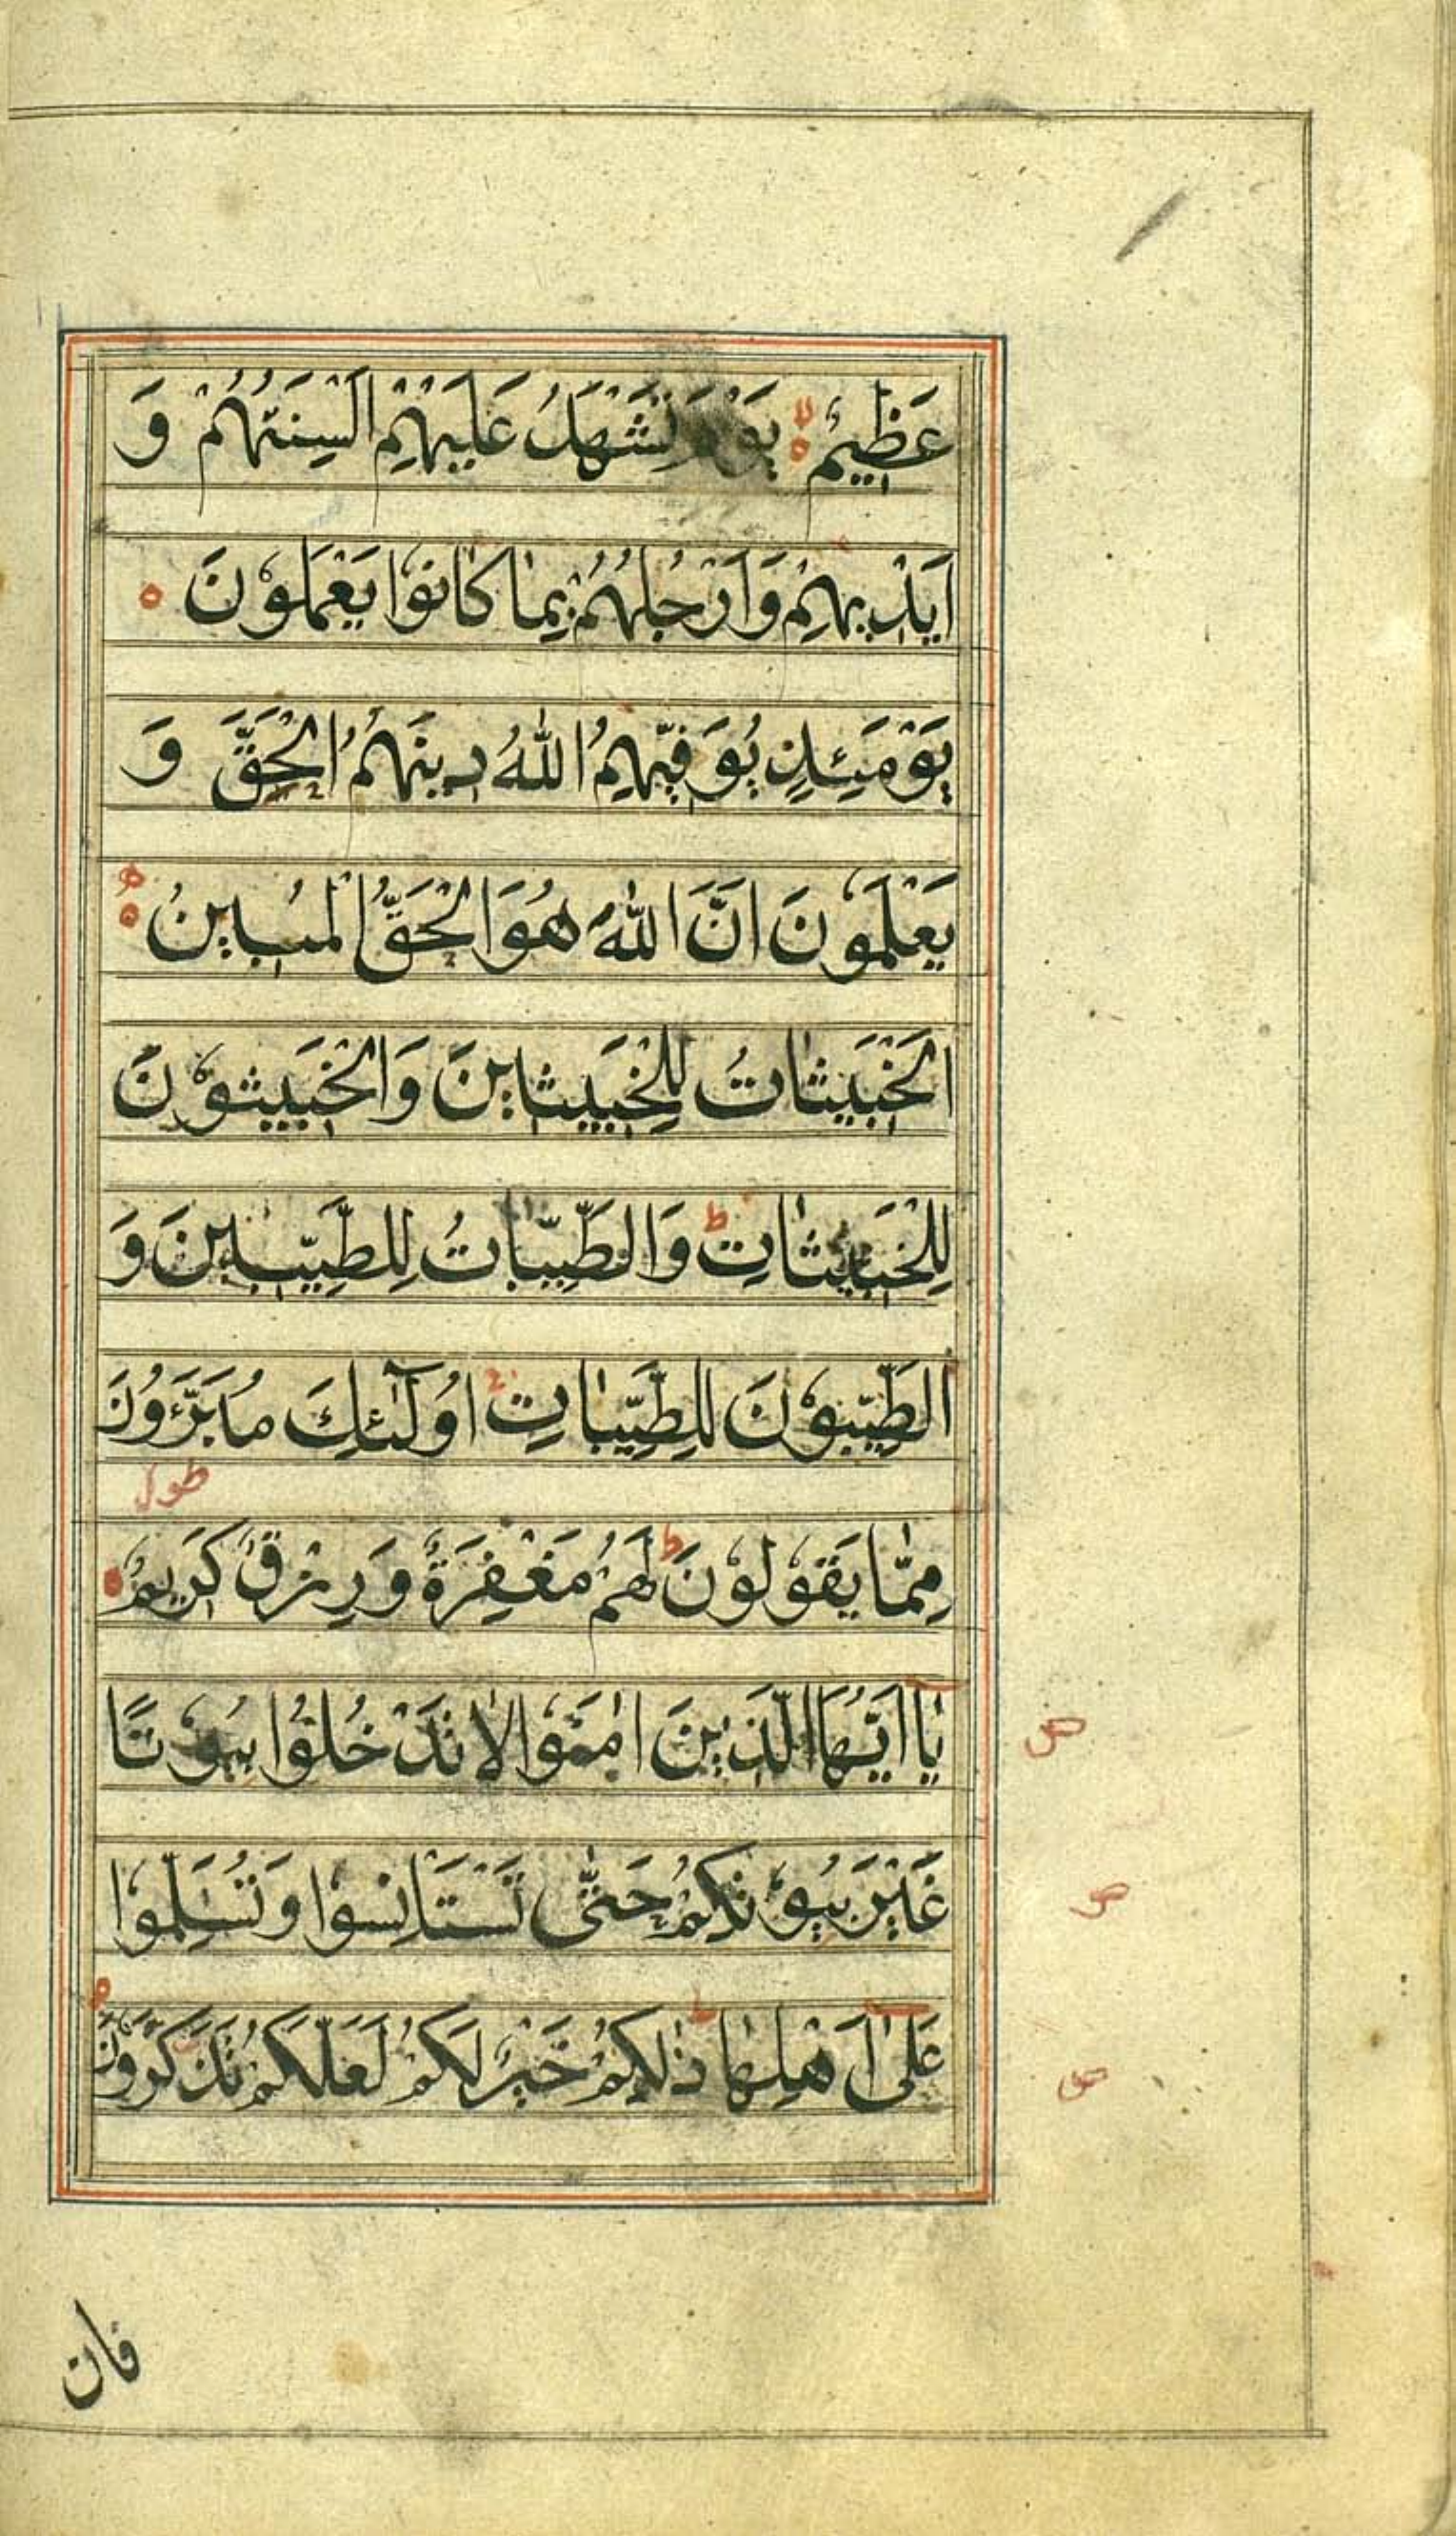 عَظِيمٌ ۙ يَوْمَ تَشْهَدُ عَلَيْهِمْ اَلْسِنَتُهُمْ وَ
اَيْدِيهِمْ وَاَرْجُلُهُمْ بِمَا كَانُوا يَعْمَلُونَ ○
يَوْمَئِذٍ يُوَفِّيهِمُ اللّٰهُ دِينَهُمُ الْحَقَّ وَ
يَعْلَمُونَ اَنَّ اللّٰهَ هُوَ الْحَقُّ الْمُبِينُ ○
اَلْخَبِيثَاتُ لِلْخَبِيثِينَ وَالْخَبِيثُونَ
لِلْخَبِيثَاتِ ط وَالطَّيِّبَاتُ لِلطَّيِّبِينَ وَ
الطَّيِّبُونَ لِلطَّيِّبَاتِ اُولٰٓئِكَ مُبَرَّؤُنَ
مِمَّا يَقُولُونَ ط لَهُمْ مَغْفِرَةٌ وَرِزْقٌ كَرِيمٌ ○
يٰٓا اَيُّهَا الَّذِينَ اٰمَنُوا لَا تَدْخُلُوا بُيُوتًا
ص
غَيْرَ بُيُوتِكُمْ حَتّٰى تَسْتَانِسُوا وَتُسَلِّمُوا
ص
عَلٰٓى اَهْلِهَا ط ذٰلِكُمْ خَيْرٌ لَكُمْ لَعَلَّكُمْ تَذَكَّرُونَ ○
ص
فان